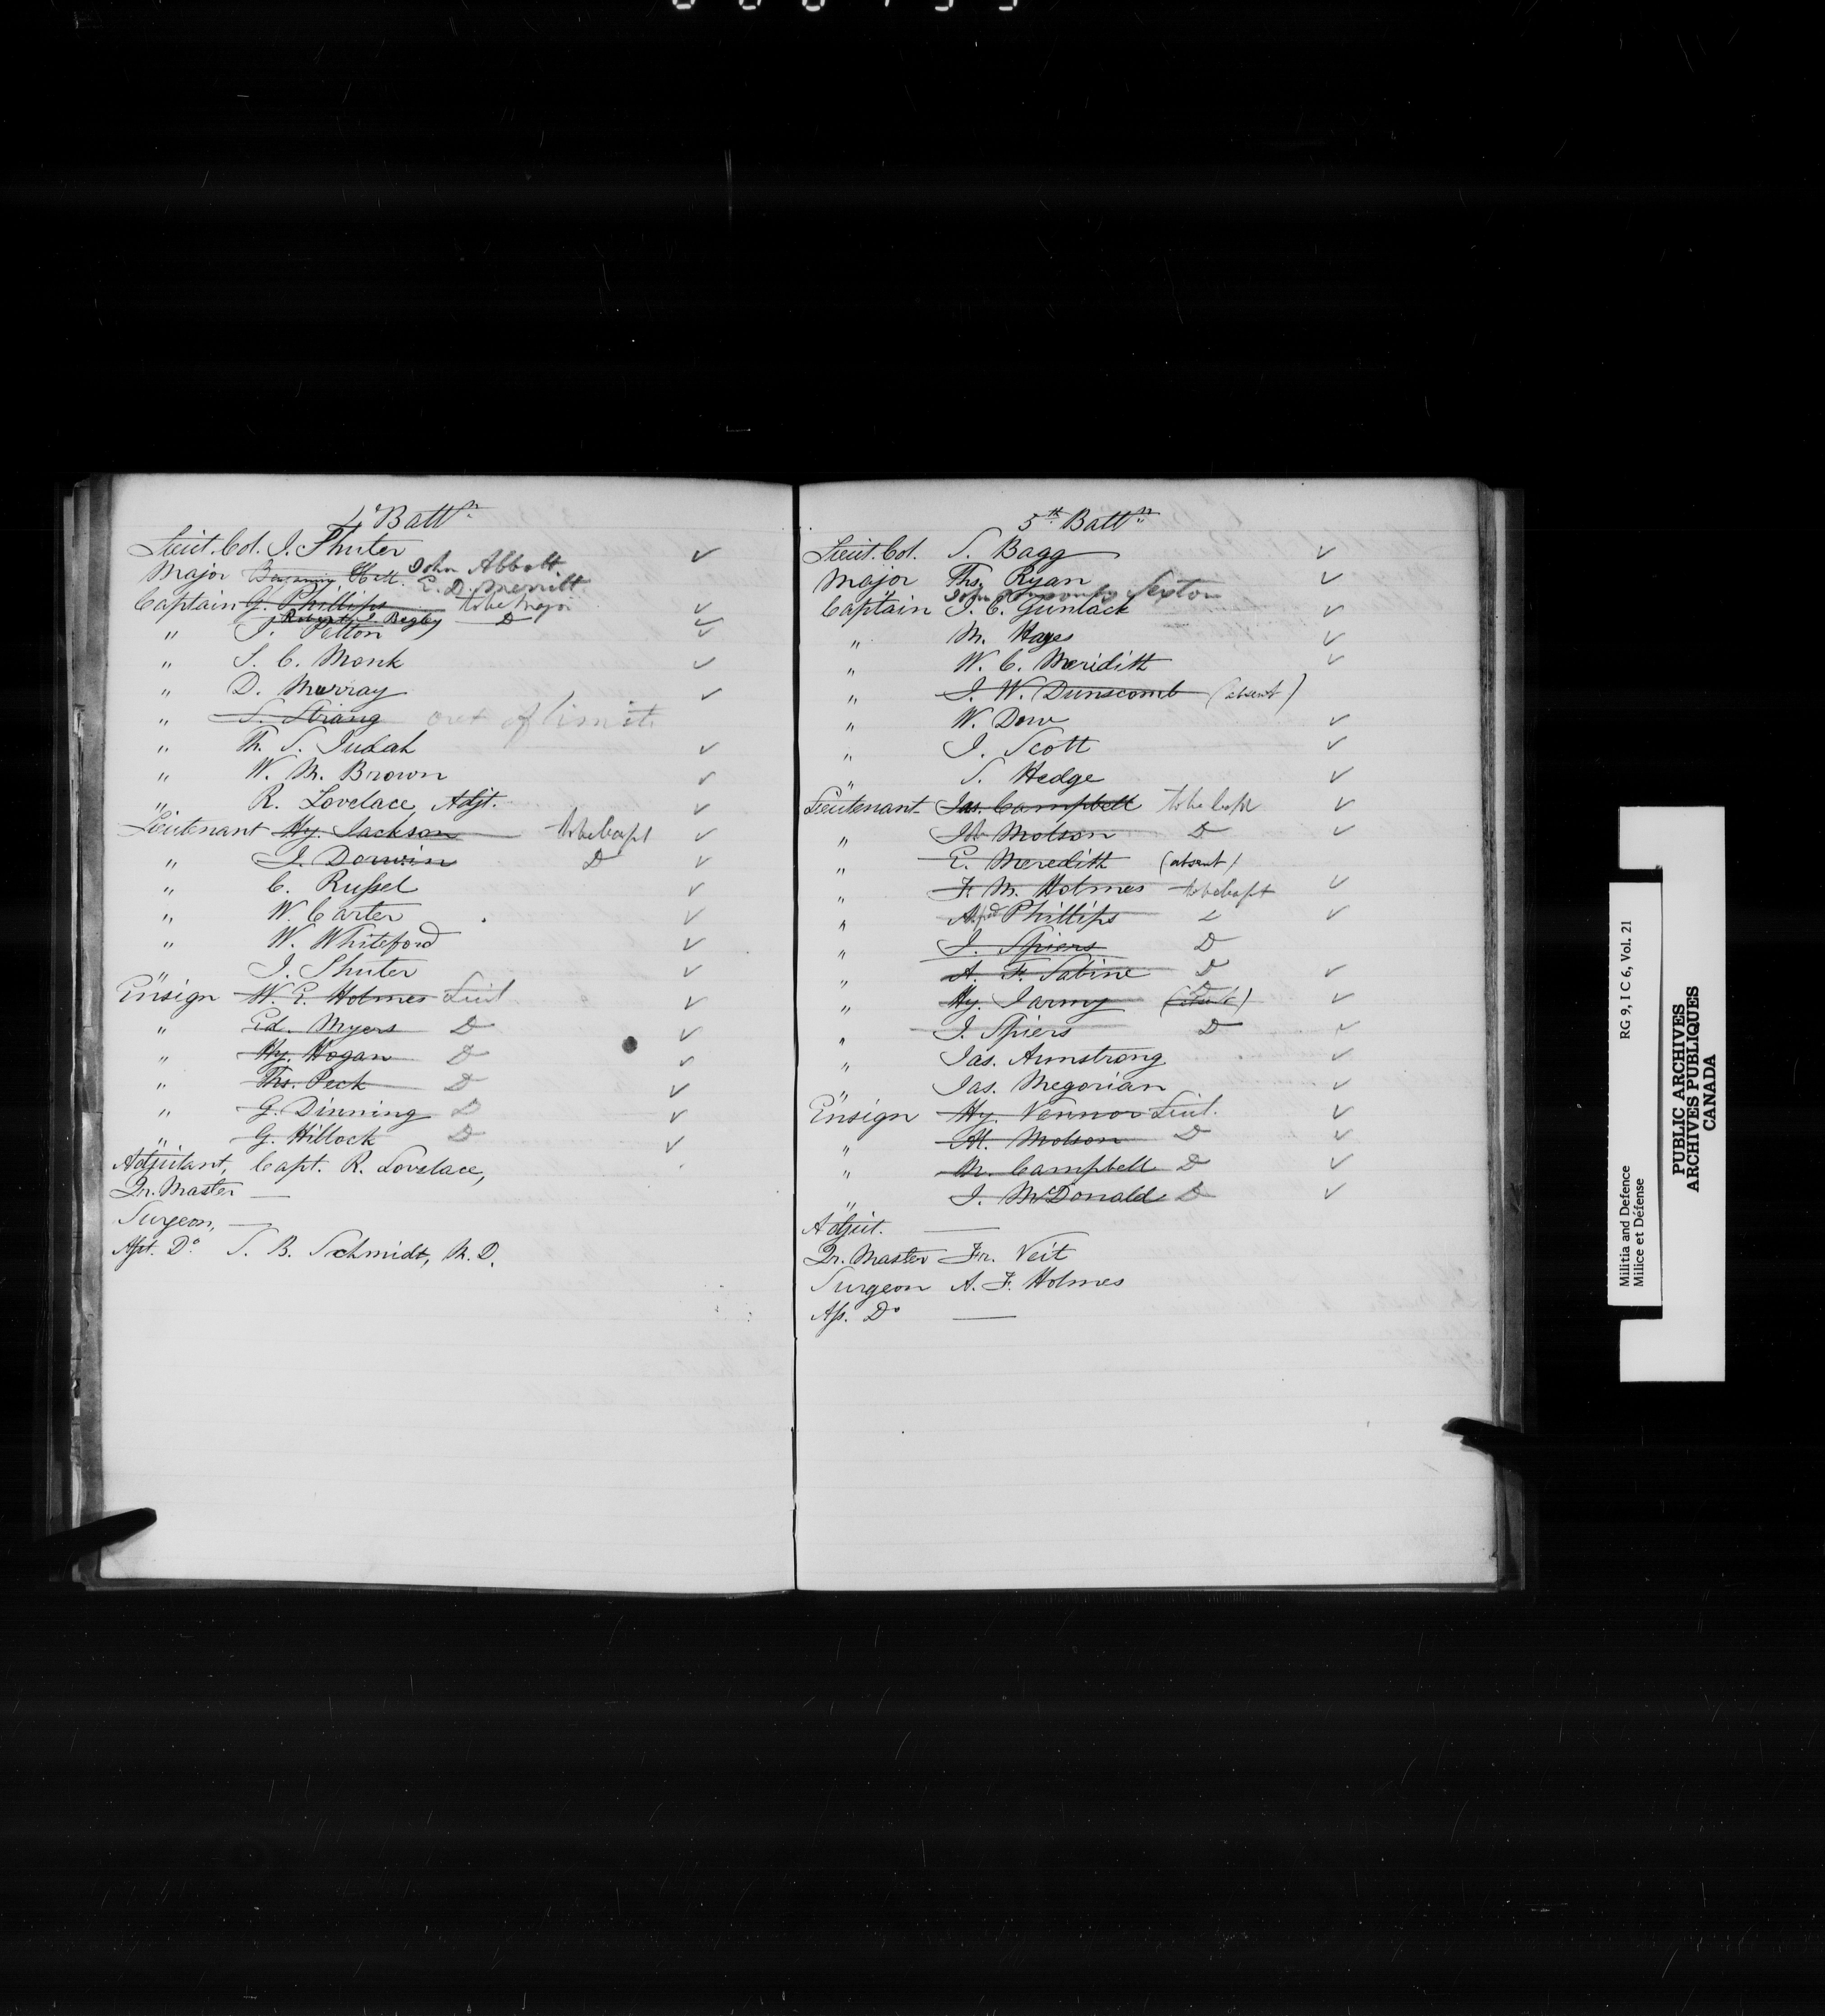 4th Battn
Lieut. Col. J. Shuter
John Abbott
Major Benjamin Hall. E. D. Merritt
Captain G. Phillips to be Major
Robert S. Begley D
" J. Pelton
" S. C. Monk
" D. Murray
" S. Strang out of limit
" Th. S. Judah
" W. M. Brown
" R. Lovelace, Adjt.
Lieutenant Hy. Jackson to be Capt
" J. Darwin D
" C. Russel
" W. Carter
" W. Whiteford
" J. Shuter
Ensign W. E. Holmes Lieut
" Ed. Myers D
" Hy. Hogan D
" Ths. Peck D
" G. Dinning D
" G. Hillock D
Adjutant, Capt. R. Lovelace,
Qr. Master —
Surgeon, —
Asst. Do. S. B. Schmidt, M. D.
5th Battn
Lieut. Col. S. Bagg
Major Ths. Ryan
John Sexton
Captain J. C. Gunlack
" M. Hayes
" W. C. Meridith
" J. W. Dunscomb (absent)
" W. Dow
" J. Scott
" S. Hedge
Lieutenant Jas. Campbell to be Capt
" Jn Molson D
" E. Meredith (absent)
" F. M. Holmes to be Capt
" Alfred Phillips
" J. Spiers D
" A. F. Sabine D
" Hy. Jarmy
" J. Spiers D
" Jas. Armstrong
" Jas. Megorian
Ensign Hy. Vennor Lieut.
" Al. Molson D
" M. Campbell D
" J. McDonald D
Adjut. —
Qr. Master Fr. Veit
Surgeon A. F. Holmes
Ass. Do —
Militia and Defence RG 9, I C 6, Vol. 21
Milice et Défense
PUBLIC ARCHIVES
ARCHIVES PUBLIQUES
CANADA